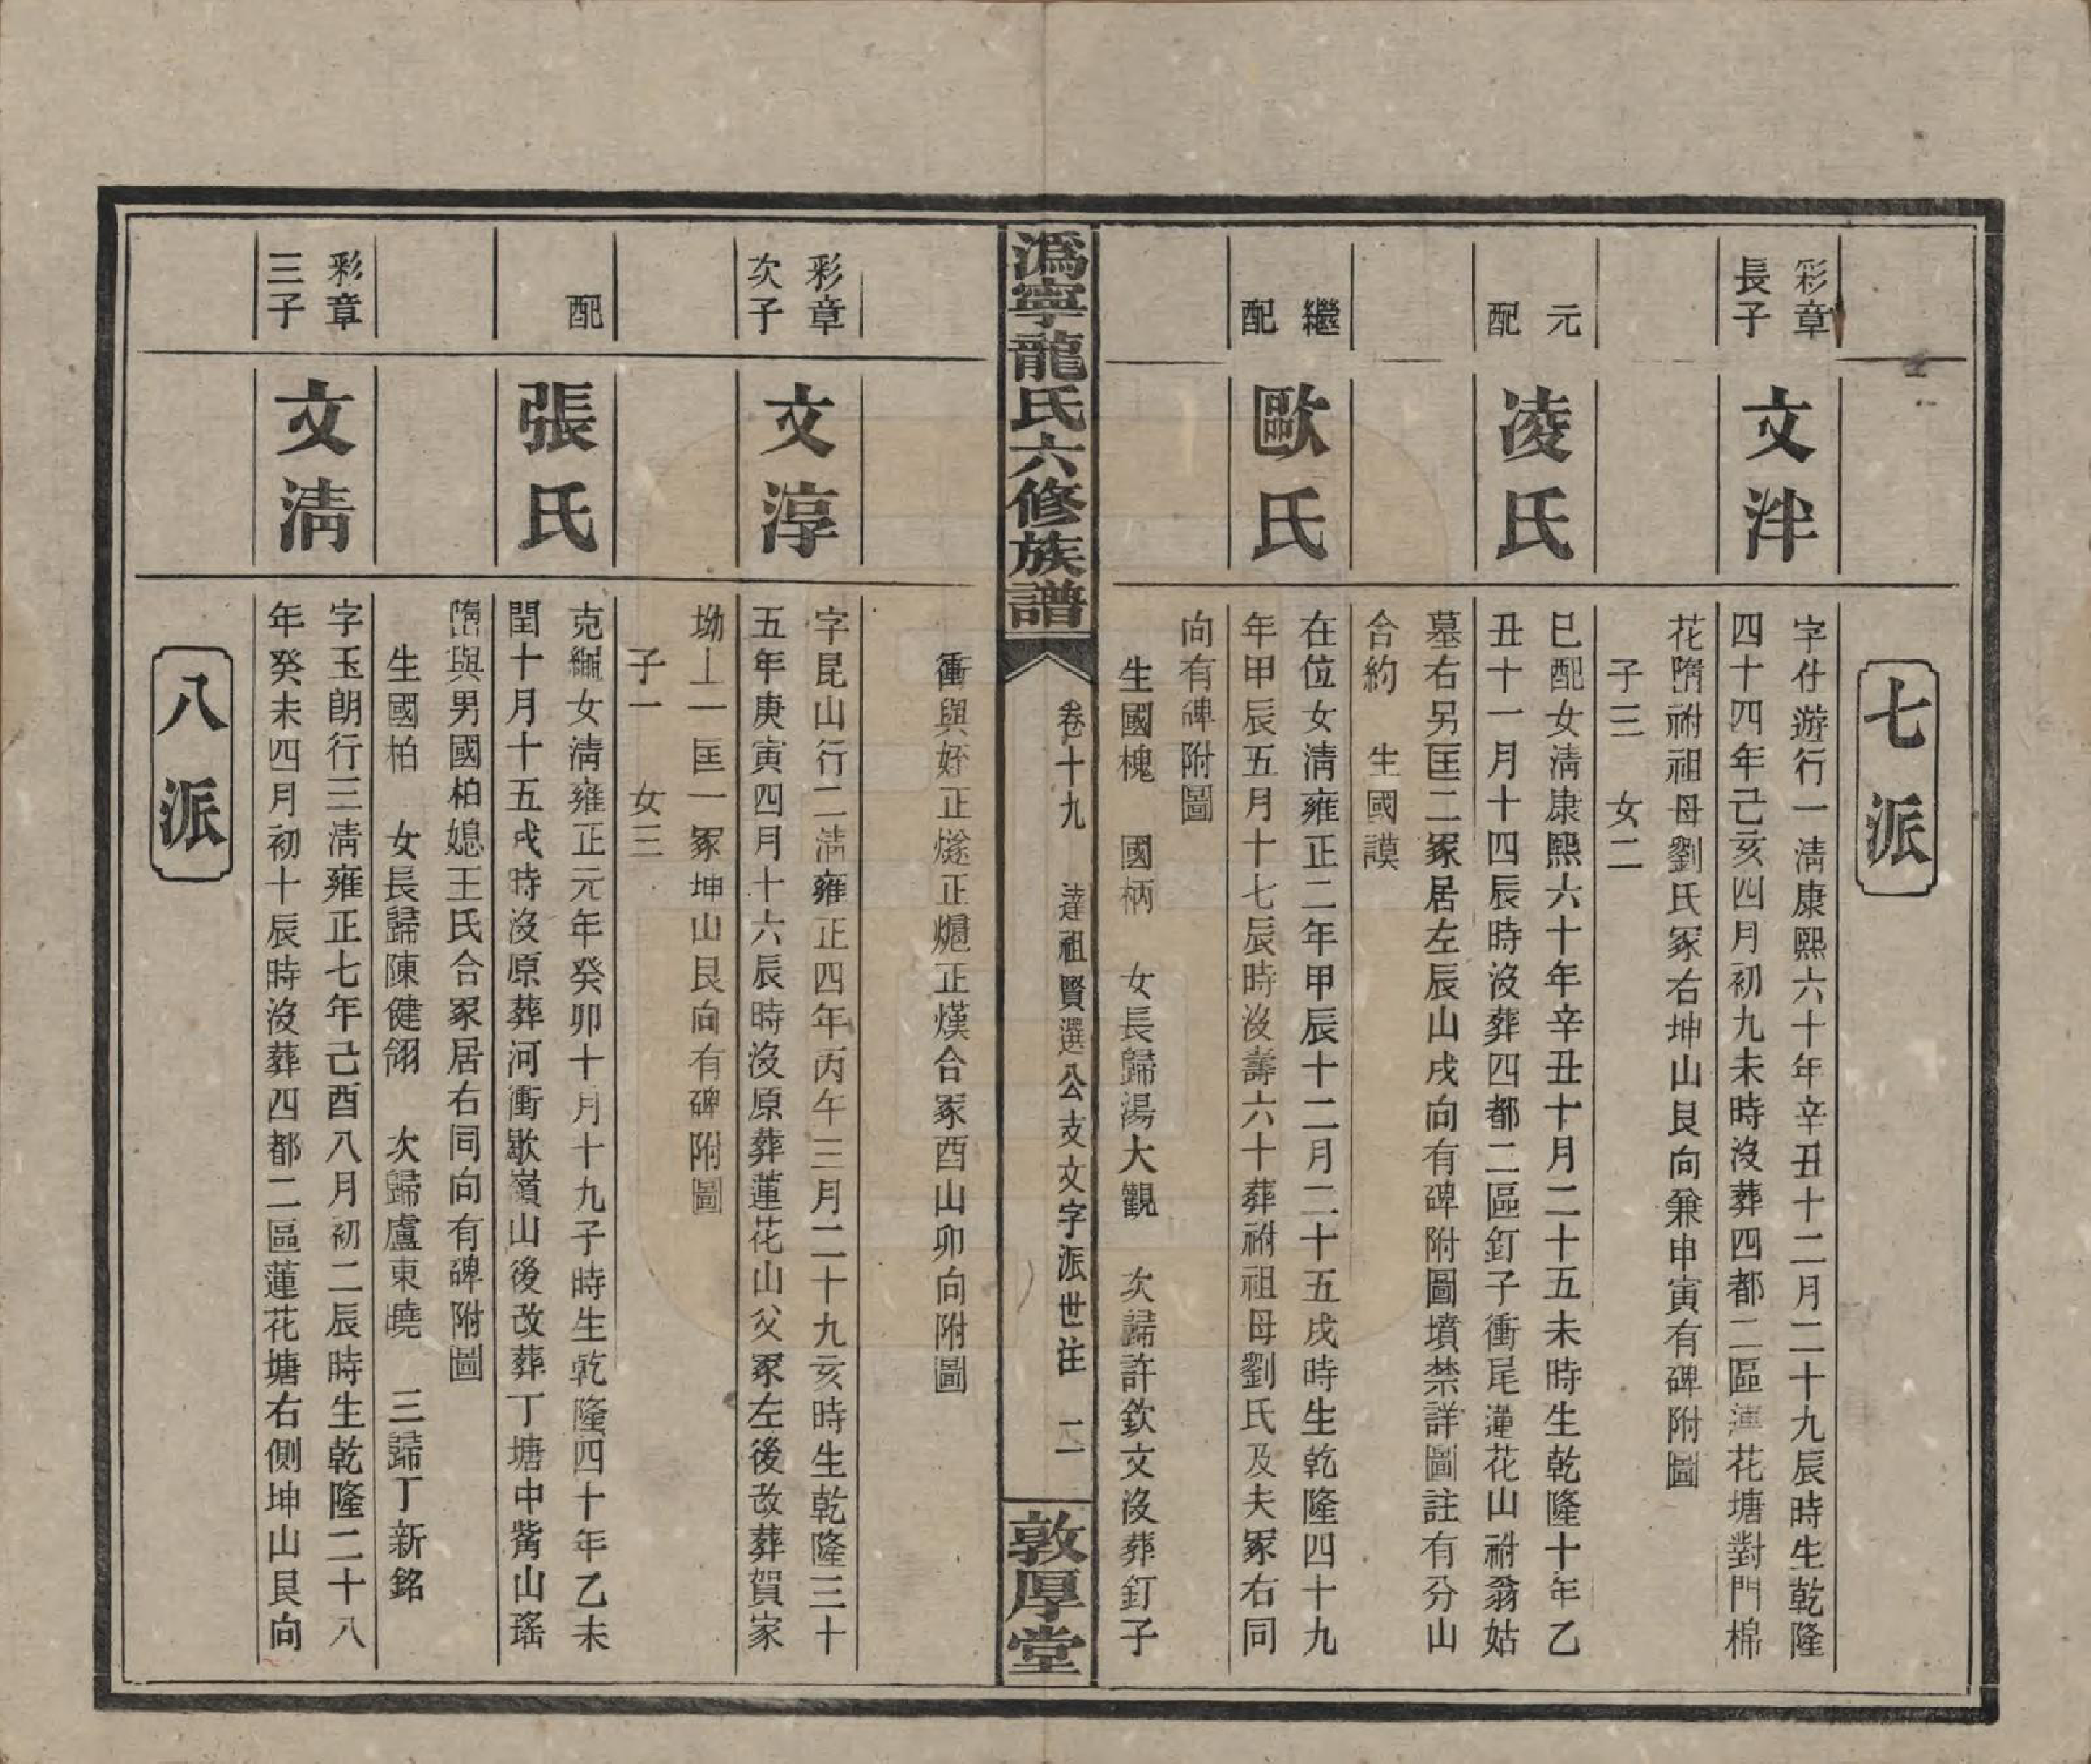 七派
彩章
長子
文泮
字仕遊行一清康熙六十年辛丑十二月二十九辰時生乾隆
四十四年己亥四月初九未時沒葬四都二區蓮花塘對門棉
花䃥祔祖母劉氏冢右坤山艮向兼申寅有碑附圖
子三　女二
元
配
凌氏
巳配女清康熙六十年辛丑十月二十五未時生乾隆十年乙
丑十一月十四辰時沒葬四都二區釘子衝尾蓮花山祔翁姑
墓右另匡二冢居左辰山戌向有碑附圖墳禁詳圖註有分山
合約　生國謨
繼
配
歐氏
在位女清雍正二年甲辰十二月二十五戌時生乾隆四十九
年甲辰五月十七辰時沒壽六十葬祔祖母劉氏及夫冢右同
向有碑附圖
生國槐　國柄　女長歸湯大觀　次歸許欽文沒葬釘子
溈寧龍氏六修族譜
卷十九　達祖賢選公支文字派世注　二
敦厚堂
衝與姪正燧正熜正熯合冢酉山卯向附圖
彩章
次子
文淳
字昆山行二清雍正四年丙午三月二十九亥時生乾隆三十
五年庚寅四月十六辰時沒原葬蓮花山父冢左後改葬賀家
坳上一匡一冢坤山艮向有碑附圖
子一　女三
配
張氏
克纚女清雍正元年癸卯十月十九子時生乾隆四十年乙未
閏十月十五戌時沒原葬河衝歇嶺山後改葬丁塘中觜山瑤
䃥與男國柏媳王氏合冢居右同向有碑附圖
生國柏　女長歸陳健翎　次歸盧東曉　三歸丁新銘
彩章
三子
文清
字玉朗行三清雍正七年己酉八月初二辰時生乾隆二十八
年癸未四月初十辰時沒葬四都二區蓮花塘右側坤山艮向
八派